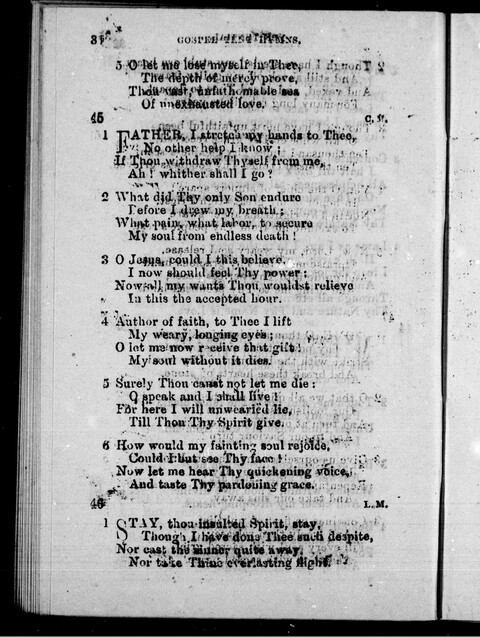 GOSPEL TENT HYMNS.
5 O let me lose myself in Thee,
The depth of mercy prove,
Thou vast, unfathomable sea
Of unexhausted love.
45 C. M.
1 FATHER, I stretch my hands to Thee,
No other help I know;
If Thou withdraw Thyself from me,
Ah! whither shall I go?
2 What did Thy only Son endure
Before I drew my breath;
What pain, what labor, to secure
My soul from endless death!
3 O Jesus, could I this believe,
I now should feel Thy power;
Now all my wants Thou wouldst relieve
In this the accepted hour.
4 Author of faith, to Thee I lift
My weary, longing eyes;
O let me now receive that gift!
My soul without it dies.
5 Surely Thou canst not let me die:
O speak and I shall live!
For here I will unwearied lie,
Till Thou Thy Spirit give.
6 How would my fainting soul rejoice,
Could I but see Thy face!
Now let me hear Thy quickening voice,
And taste Thy pardoning grace.
46 L. M.
1 STAY, thou insulted Spirit, stay,
Though I have done Thee such despite,
Nor cast the sinner quite away,
Nor take Thine everlasting flight.